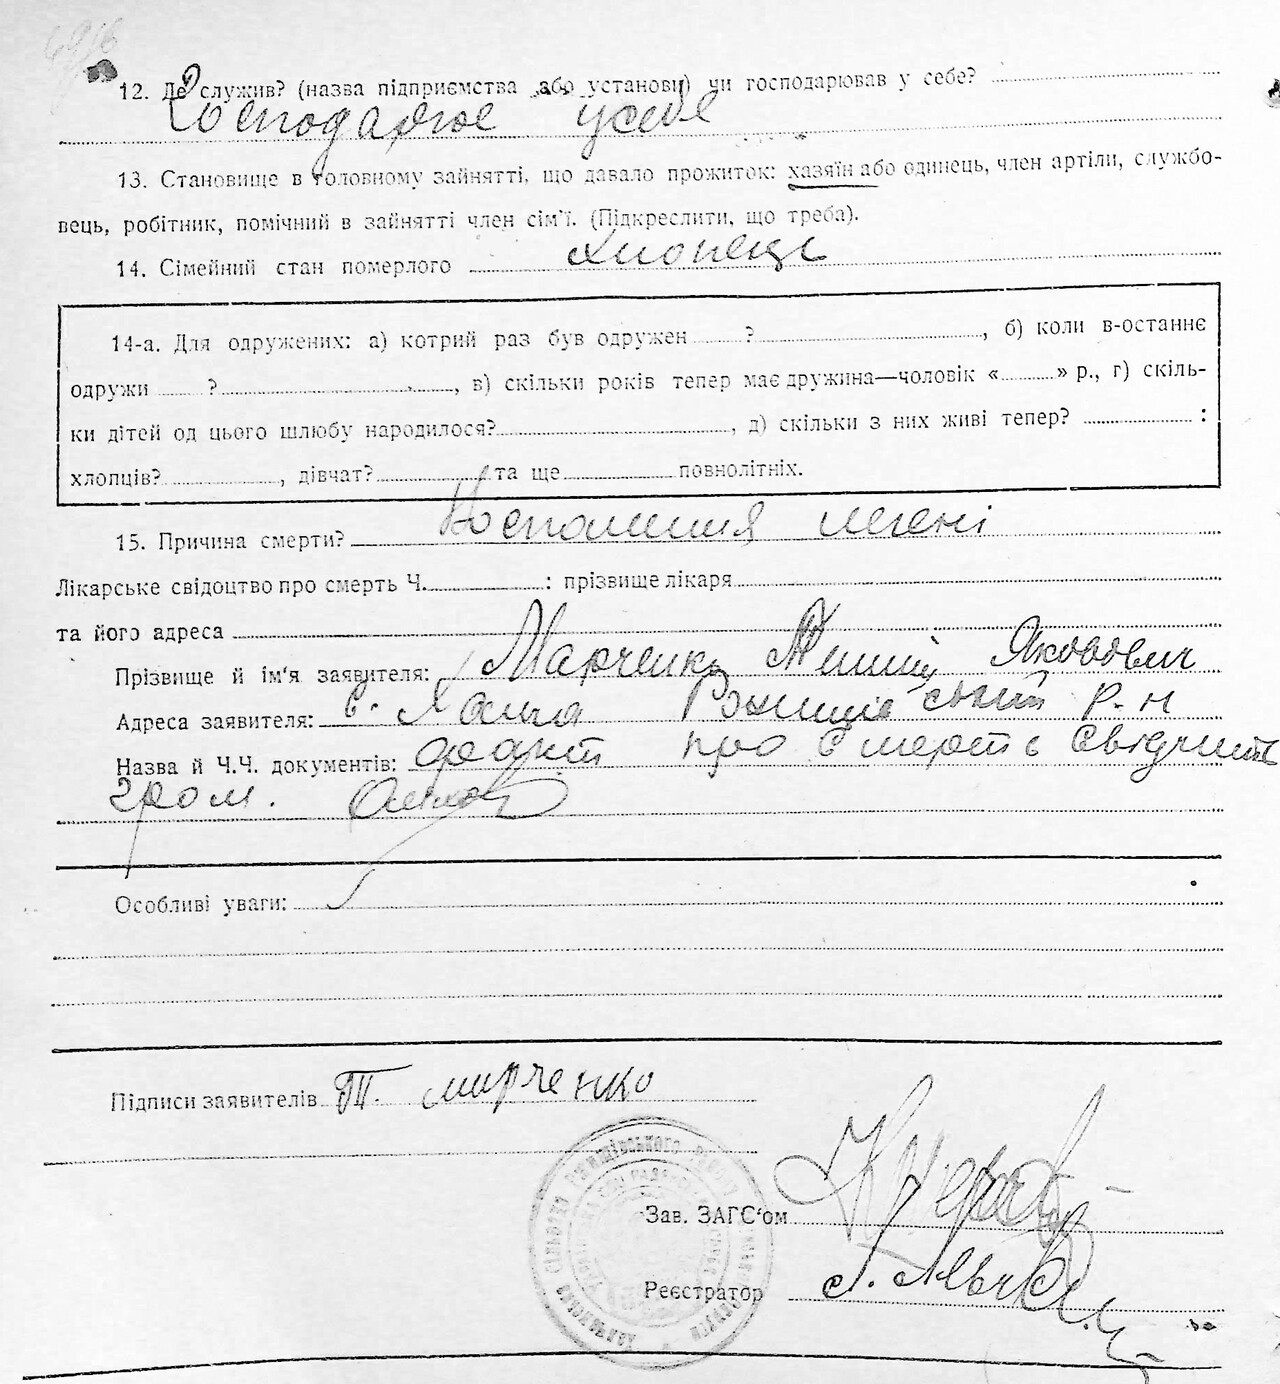 12. Де служив? (назва підприємства або установи) чи господарював у себе?
Господарює у себе
13. Становище в головному зайнятті, що давало прожиток: хазяїн або одинець, член артіли, службо-
вець, робітник, помічний в зайнятті член сім'ї. (Підкреслити, що треба).
14. Сімейний стан померлого хлопець
14-а. Для одружених: а) котрий раз був одружен ? , б) коли в-останнє
одружи ? , в) скільки років тепер має дружина—чоловік « » р., г) скіль-
ки дітей од цього шлюбу народилося? , д) скільки з них живі тепер? :
хлопців? , дівчат? та ще повнолітніх.
15. Причина смерти? легені
Лікарське свідоцтво про смерть Ч. : прізвище лікаря
та його адреса
Прізвище й ім'я заявителя: Марченко Якович
Адреса заявителя: с. р-н
Назва й Ч.Ч. документів: факт про смерть свідчить
гром.
Особливі уваги:
Підписи заявителів Т. Марченко
Зав. ЗАГС'ом
Реєстратор